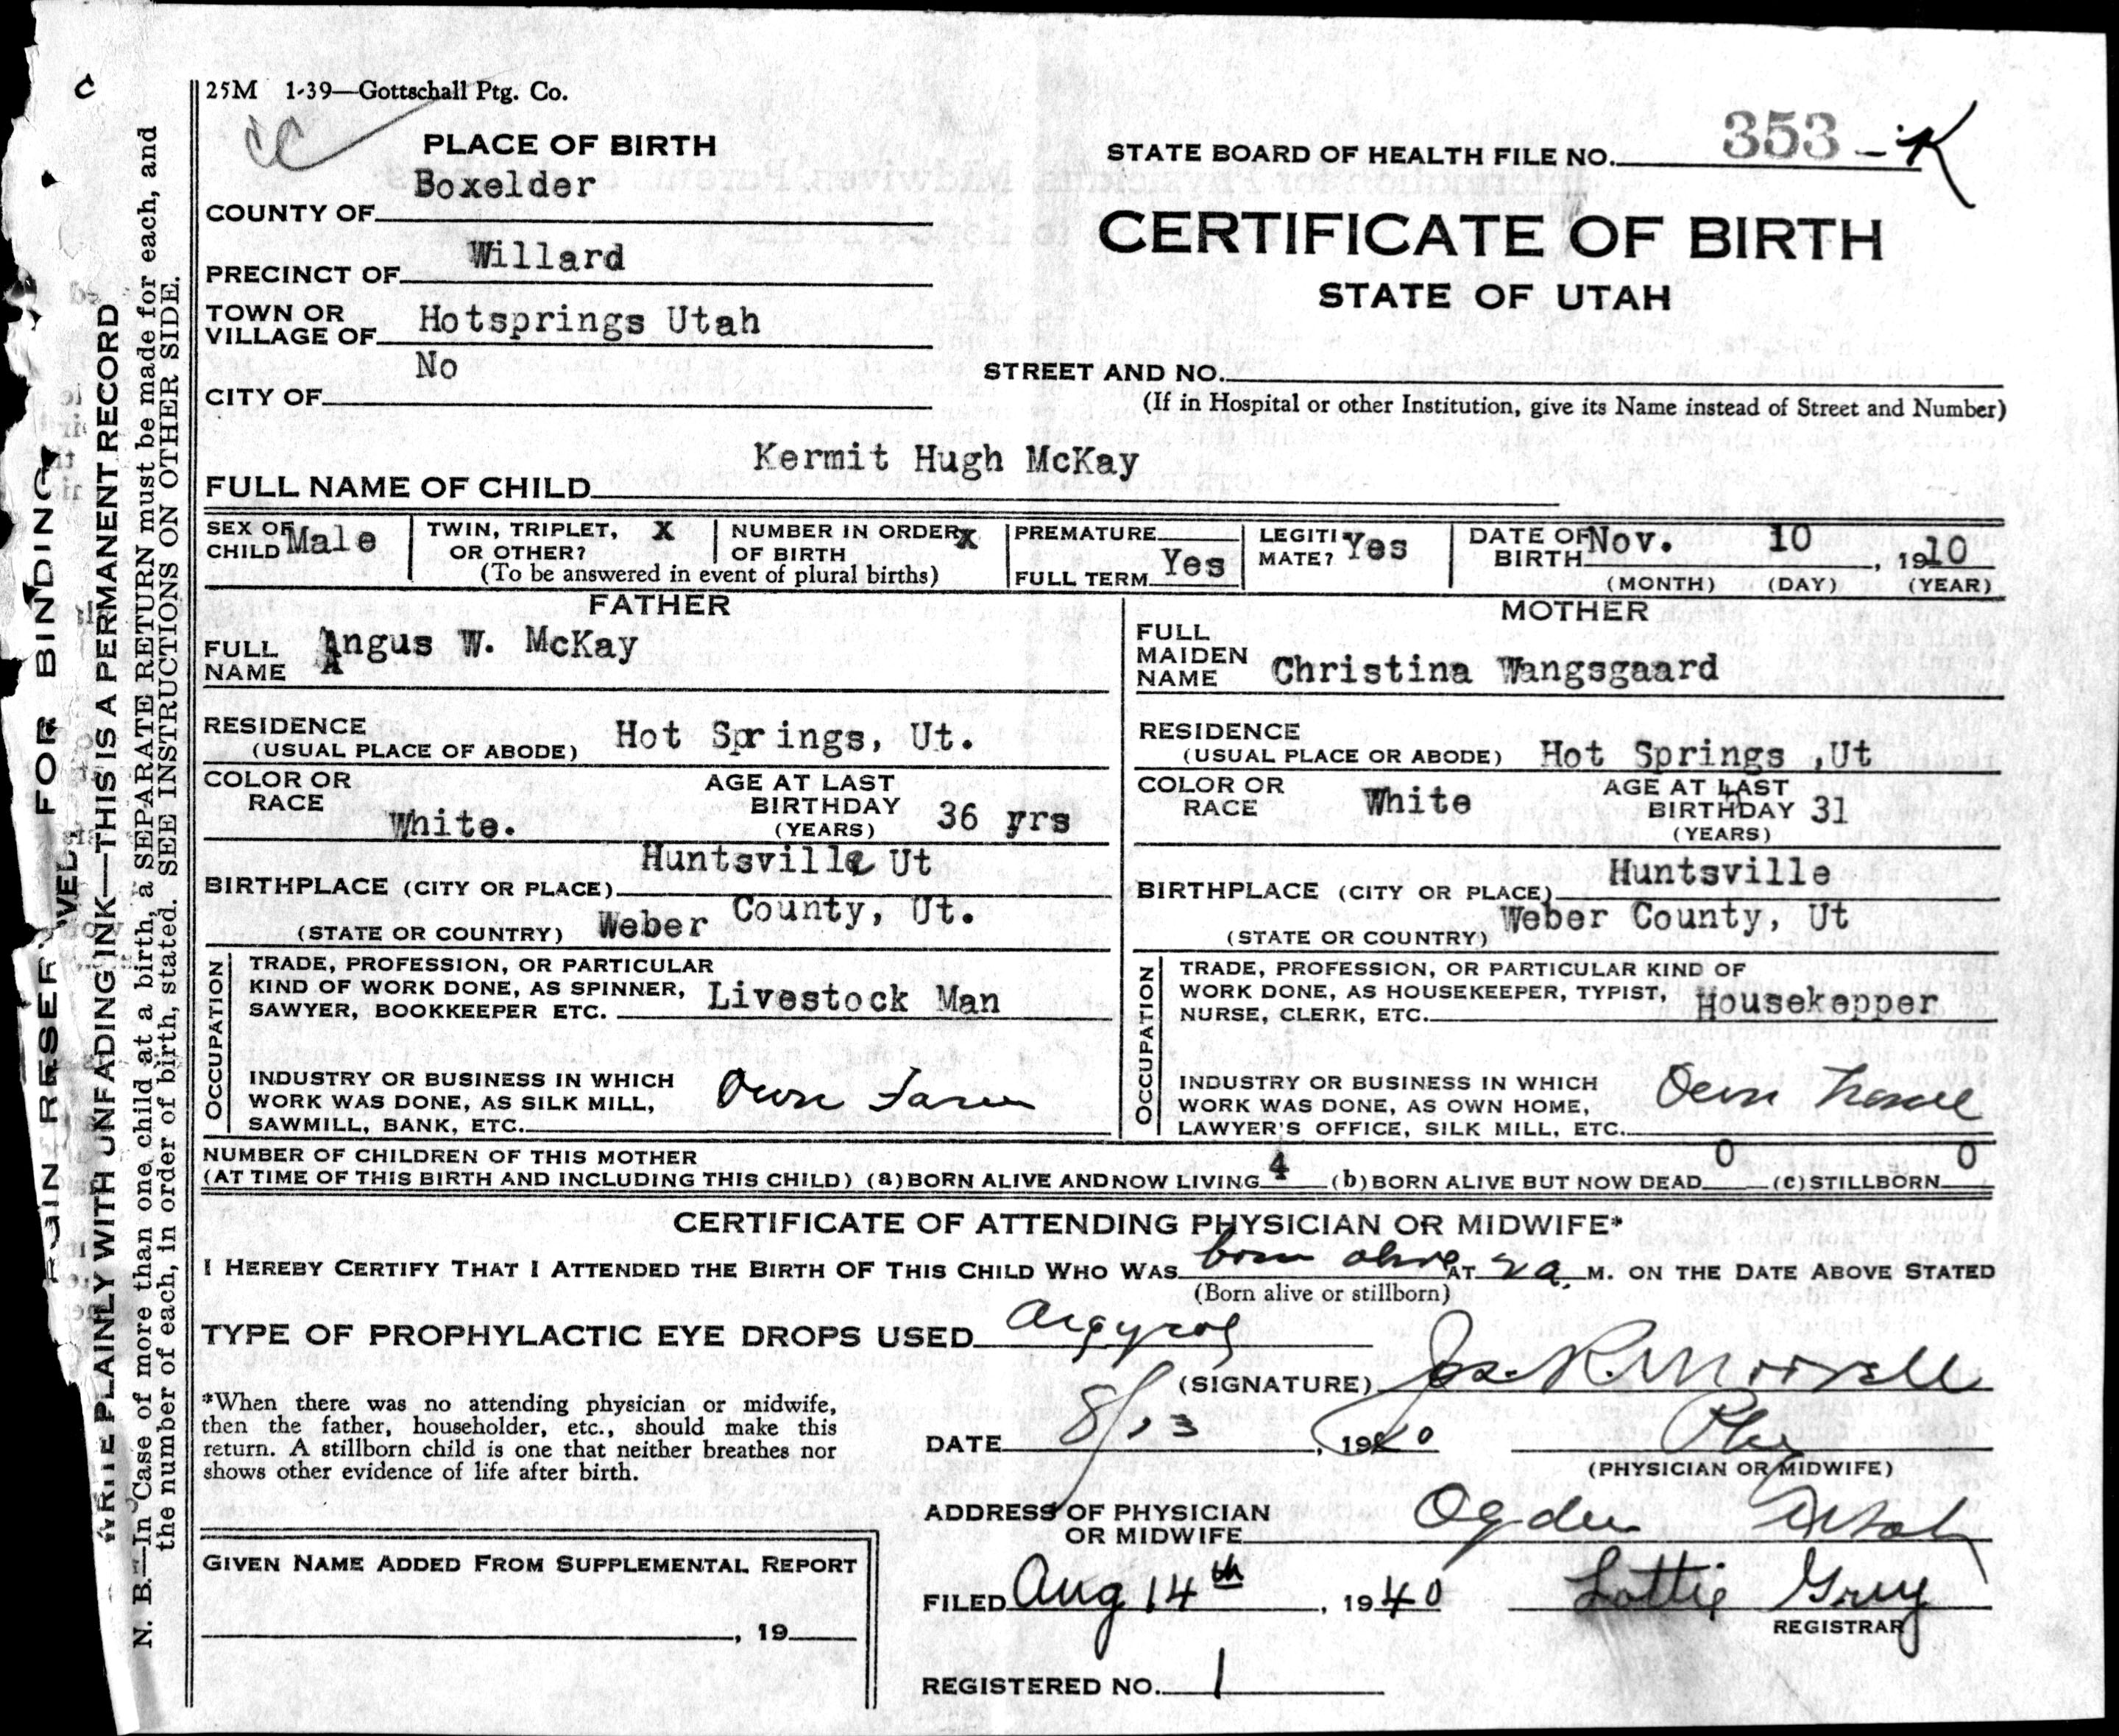 25M 1-39—Gottschall Ptg. Co.
C
CC
PLACE OF BIRTH
STATE BOARD OF HEALTH FILE NO. 353 - K
COUNTY OF Boxelder
CERTIFICATE OF BIRTH
PRECINCT OF Willard
STATE OF UTAH
TOWN OR
VILLAGE OF Hotsprings Utah
CITY OF No
STREET AND NO.
(If in Hospital or other Institution, give its Name instead of Street and Number)
FULL NAME OF CHILD Kermit Hugh McKay
SEX OF
CHILD Male
TWIN, TRIPLET, X
OR OTHER?
NUMBER IN ORDER X
OF BIRTH
(To be answered in event of plural births)
PREMATURE
FULL TERM Yes
LEGITI
MATE? Yes
DATE OF
BIRTH Nov. 10, 1910
(MONTH) (DAY) (YEAR)
FATHER
FULL
NAME Angus W. McKay
RESIDENCE
(USUAL PLACE OF ABODE) Hot Springs, Ut.
COLOR OR
RACE White.
AGE AT LAST
BIRTHDAY 36 yrs
(YEARS)
BIRTHPLACE (CITY OR PLACE) Huntsville Ut
(STATE OR COUNTRY) Weber County, Ut.
OCCUPATION
TRADE, PROFESSION, OR PARTICULAR
KIND OF WORK DONE, AS SPINNER,
SAWYER, BOOKKEEPER ETC. Livestock Man
INDUSTRY OR BUSINESS IN WHICH
WORK WAS DONE, AS SILK MILL,
SAWMILL, BANK, ETC. Own Farm
MOTHER
FULL
MAIDEN
NAME Christina Wangsgaard
RESIDENCE
(USUAL PLACE OR ABODE) Hot Springs ,Ut
COLOR OR
RACE White
AGE AT LAST
BIRTHDAY 31
(YEARS)
BIRTHPLACE (CITY OR PLACE) Huntsville
(STATE OR COUNTRY) Weber County, Ut
OCCUPATION
TRADE, PROFESSION, OR PARTICULAR KIND OF
WORK DONE, AS HOUSEKEEPER, TYPIST,
NURSE, CLERK, ETC. Housekepper
INDUSTRY OR BUSINESS IN WHICH
WORK WAS DONE, AS OWN HOME,
LAWYER'S OFFICE, SILK MILL, ETC. Own Home
NUMBER OF CHILDREN OF THIS MOTHER
(AT TIME OF THIS BIRTH AND INCLUDING THIS CHILD) (a) BORN ALIVE AND NOW LIVING 4 (b) BORN ALIVE BUT NOW DEAD 0 (c) STILLBORN 0
CERTIFICATE OF ATTENDING PHYSICIAN OR MIDWIFE*
I HEREBY CERTIFY THAT I ATTENDED THE BIRTH OF THIS CHILD WHO WAS born alive AT 2 a. M. ON THE DATE ABOVE STATED
(Born alive or stillborn)
TYPE OF PROPHYLACTIC EYE DROPS USED Argyrol
(SIGNATURE) Jos. R. Morrell
*When there was no attending physician or midwife,
then the father, householder, etc., should make this
return. A stillborn child is one that neither breathes nor
shows other evidence of life after birth.
DATE 8/13, 1940
Phy
(PHYSICIAN OR MIDWIFE)
ADDRESS OF PHYSICIAN
OR MIDWIFE Ogden Utah
GIVEN NAME ADDED FROM SUPPLEMENTAL REPORT
, 19
FILED Aug 14th, 1940 Lottie Grey
REGISTRAR
REGISTERED NO. 1
FOR BINDING
WRITE PLAINLY WITH UNFADING INK—THIS IS A PERMANENT RECORD
N. B.—In Case of more than one child at a birth, a SEPARATE RETURN must be made for each, and
the number of each, in order of birth, stated. SEE INSTRUCTIONS ON OTHER SIDE.